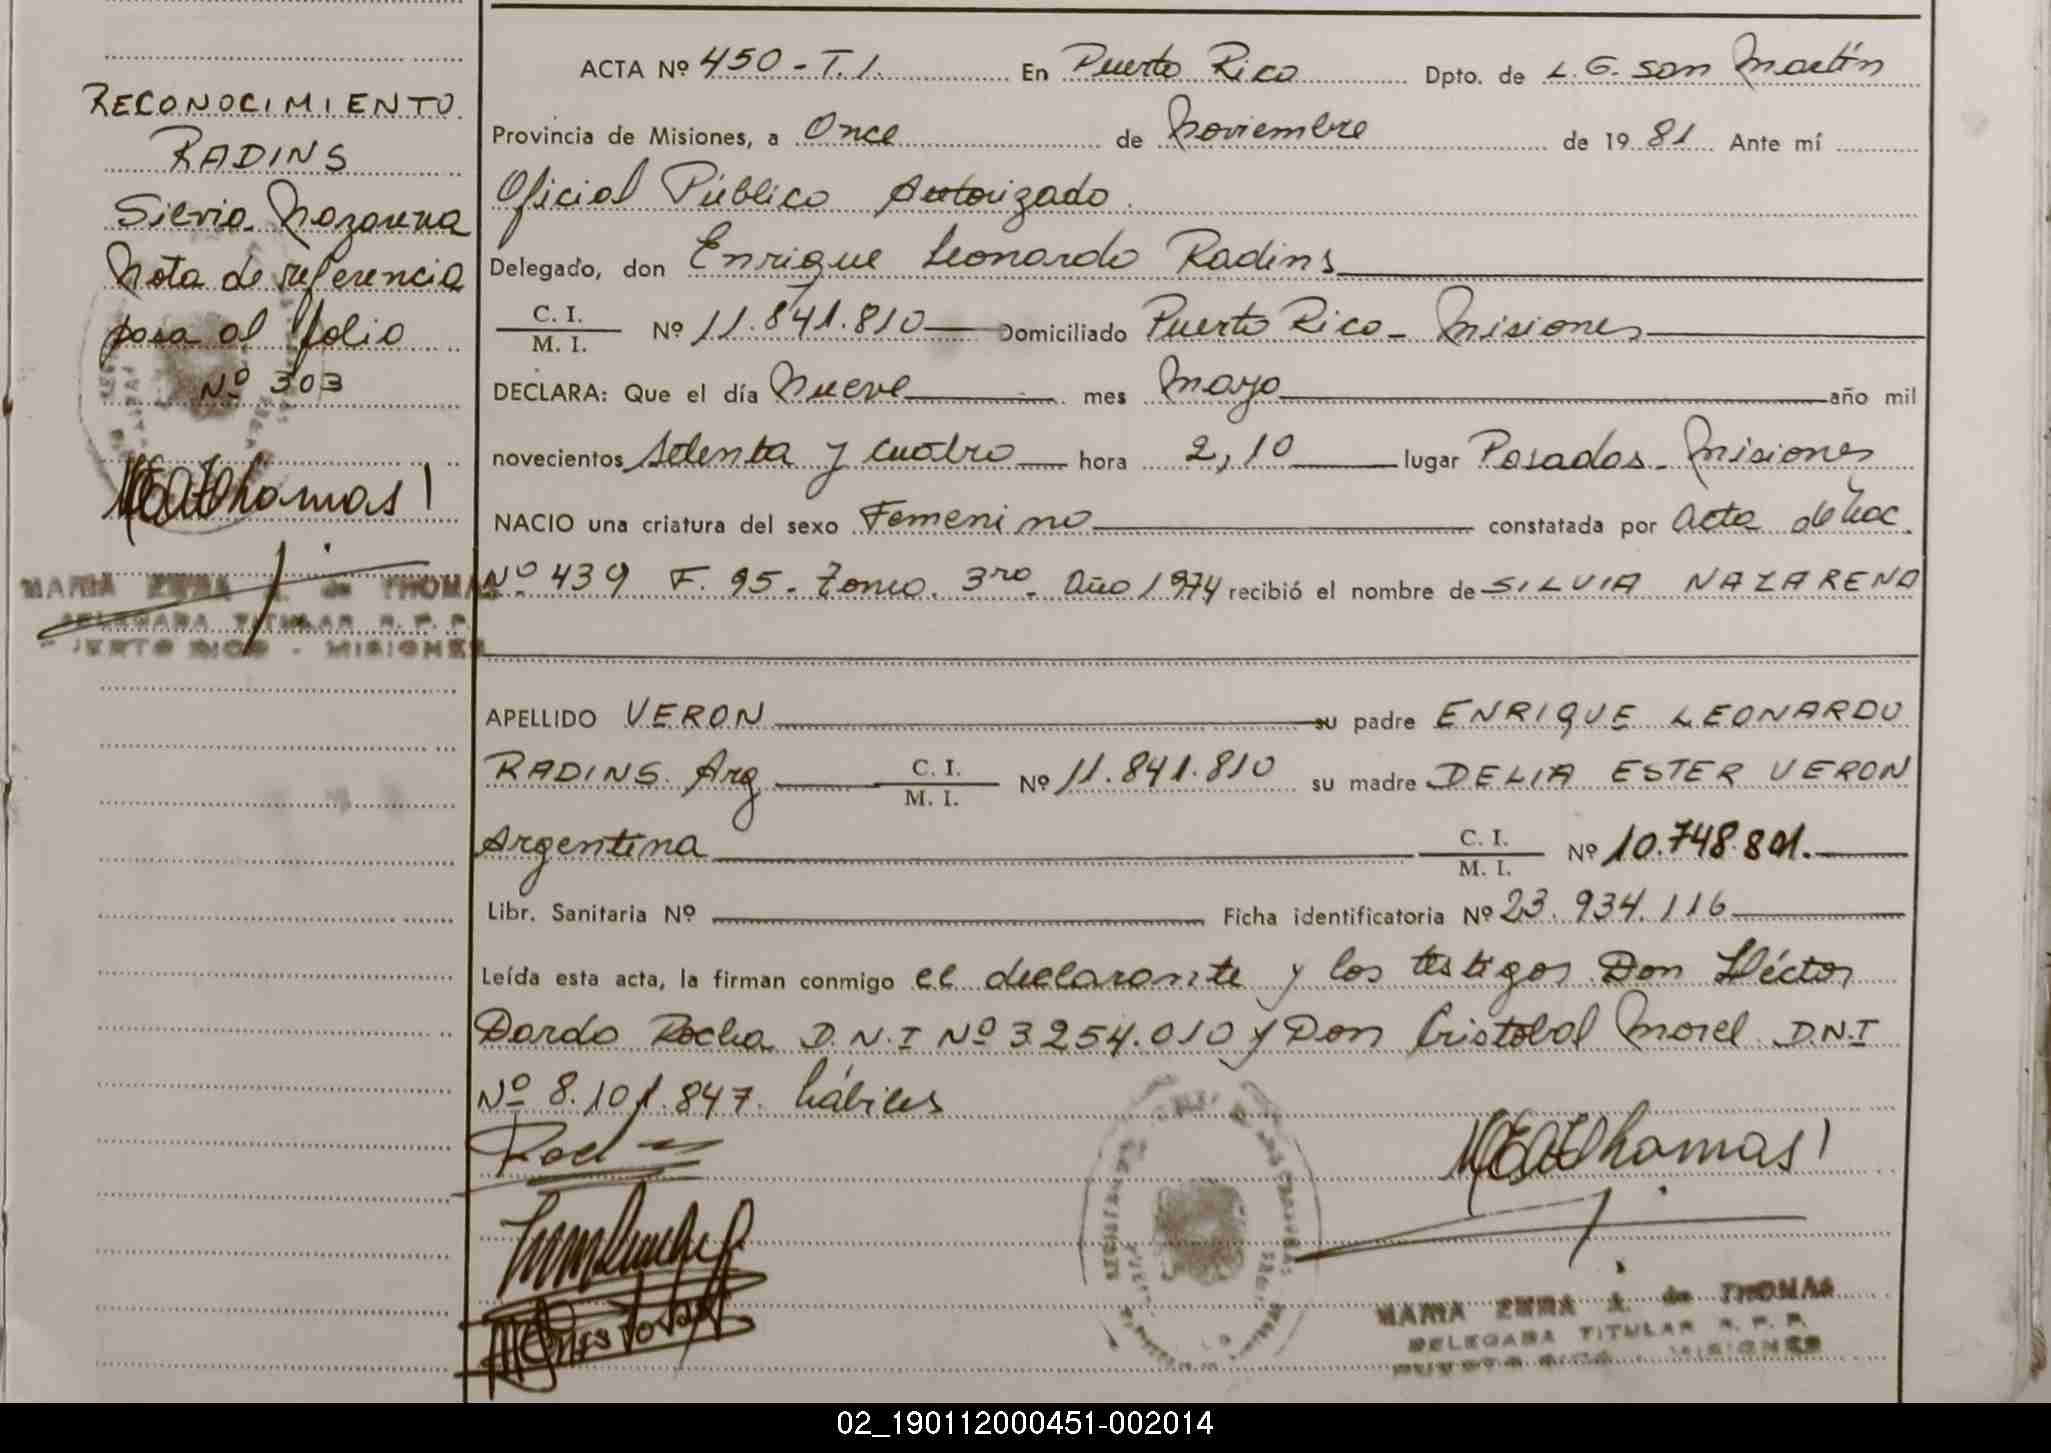 RECONOCIMIENTO
RADINS
Silvia Nazarena
Nota de referencia
pasa al folio
Nº 303
MARIA EMMA A. de THOMAS
DELEGADA TITULAR R. P. P.
PUERTO RICO - MISIONES
ACTA Nº 450 - T. I. En Puerto Rico Dpto. de L. G. San Martín
Provincia de Misiones, a Once de Noviembre de 1981 Ante mí
Oficial Público Autorizado
Delegado, don Enrique Leonardo Radins
C. I. / M. I. Nº 11.841.810 Domiciliado Puerto Rico - Misiones
DECLARA: Que el día Nueve mes Mayo año mil
novecientos Setenta y cuatro hora 2,10 lugar Posadas - Misiones
NACIO una criatura del sexo Femenino constatada por Acta de Nac.
Nº 439 F. 95 - Tomo. 3ro. Año 1974 recibió el nombre de SILVIA NAZARENA
APELLIDO VERON su padre ENRIQUE LEONARDO
RADINS. Arg C. I. / M. I. Nº 11.841.810 su madre DELIA ESTER VERON
Argentina C. I. / M. I. Nº 10.748.801.
Libr. Sanitaria Nº Ficha identificatoria Nº 23.934.116
Leída esta acta, la firman conmigo el declarante y los testigos Don Héctor
Dardo Rocha D.N.I Nº 3254.010 y Don Cristobal Morel D.N.I
Nº 8.101.847. hábiles
MARIA EMMA A. de THOMAS
DELEGADA TITULAR R. P. P.
PUERTO RICO - MISIONES
02_190112000451-002014